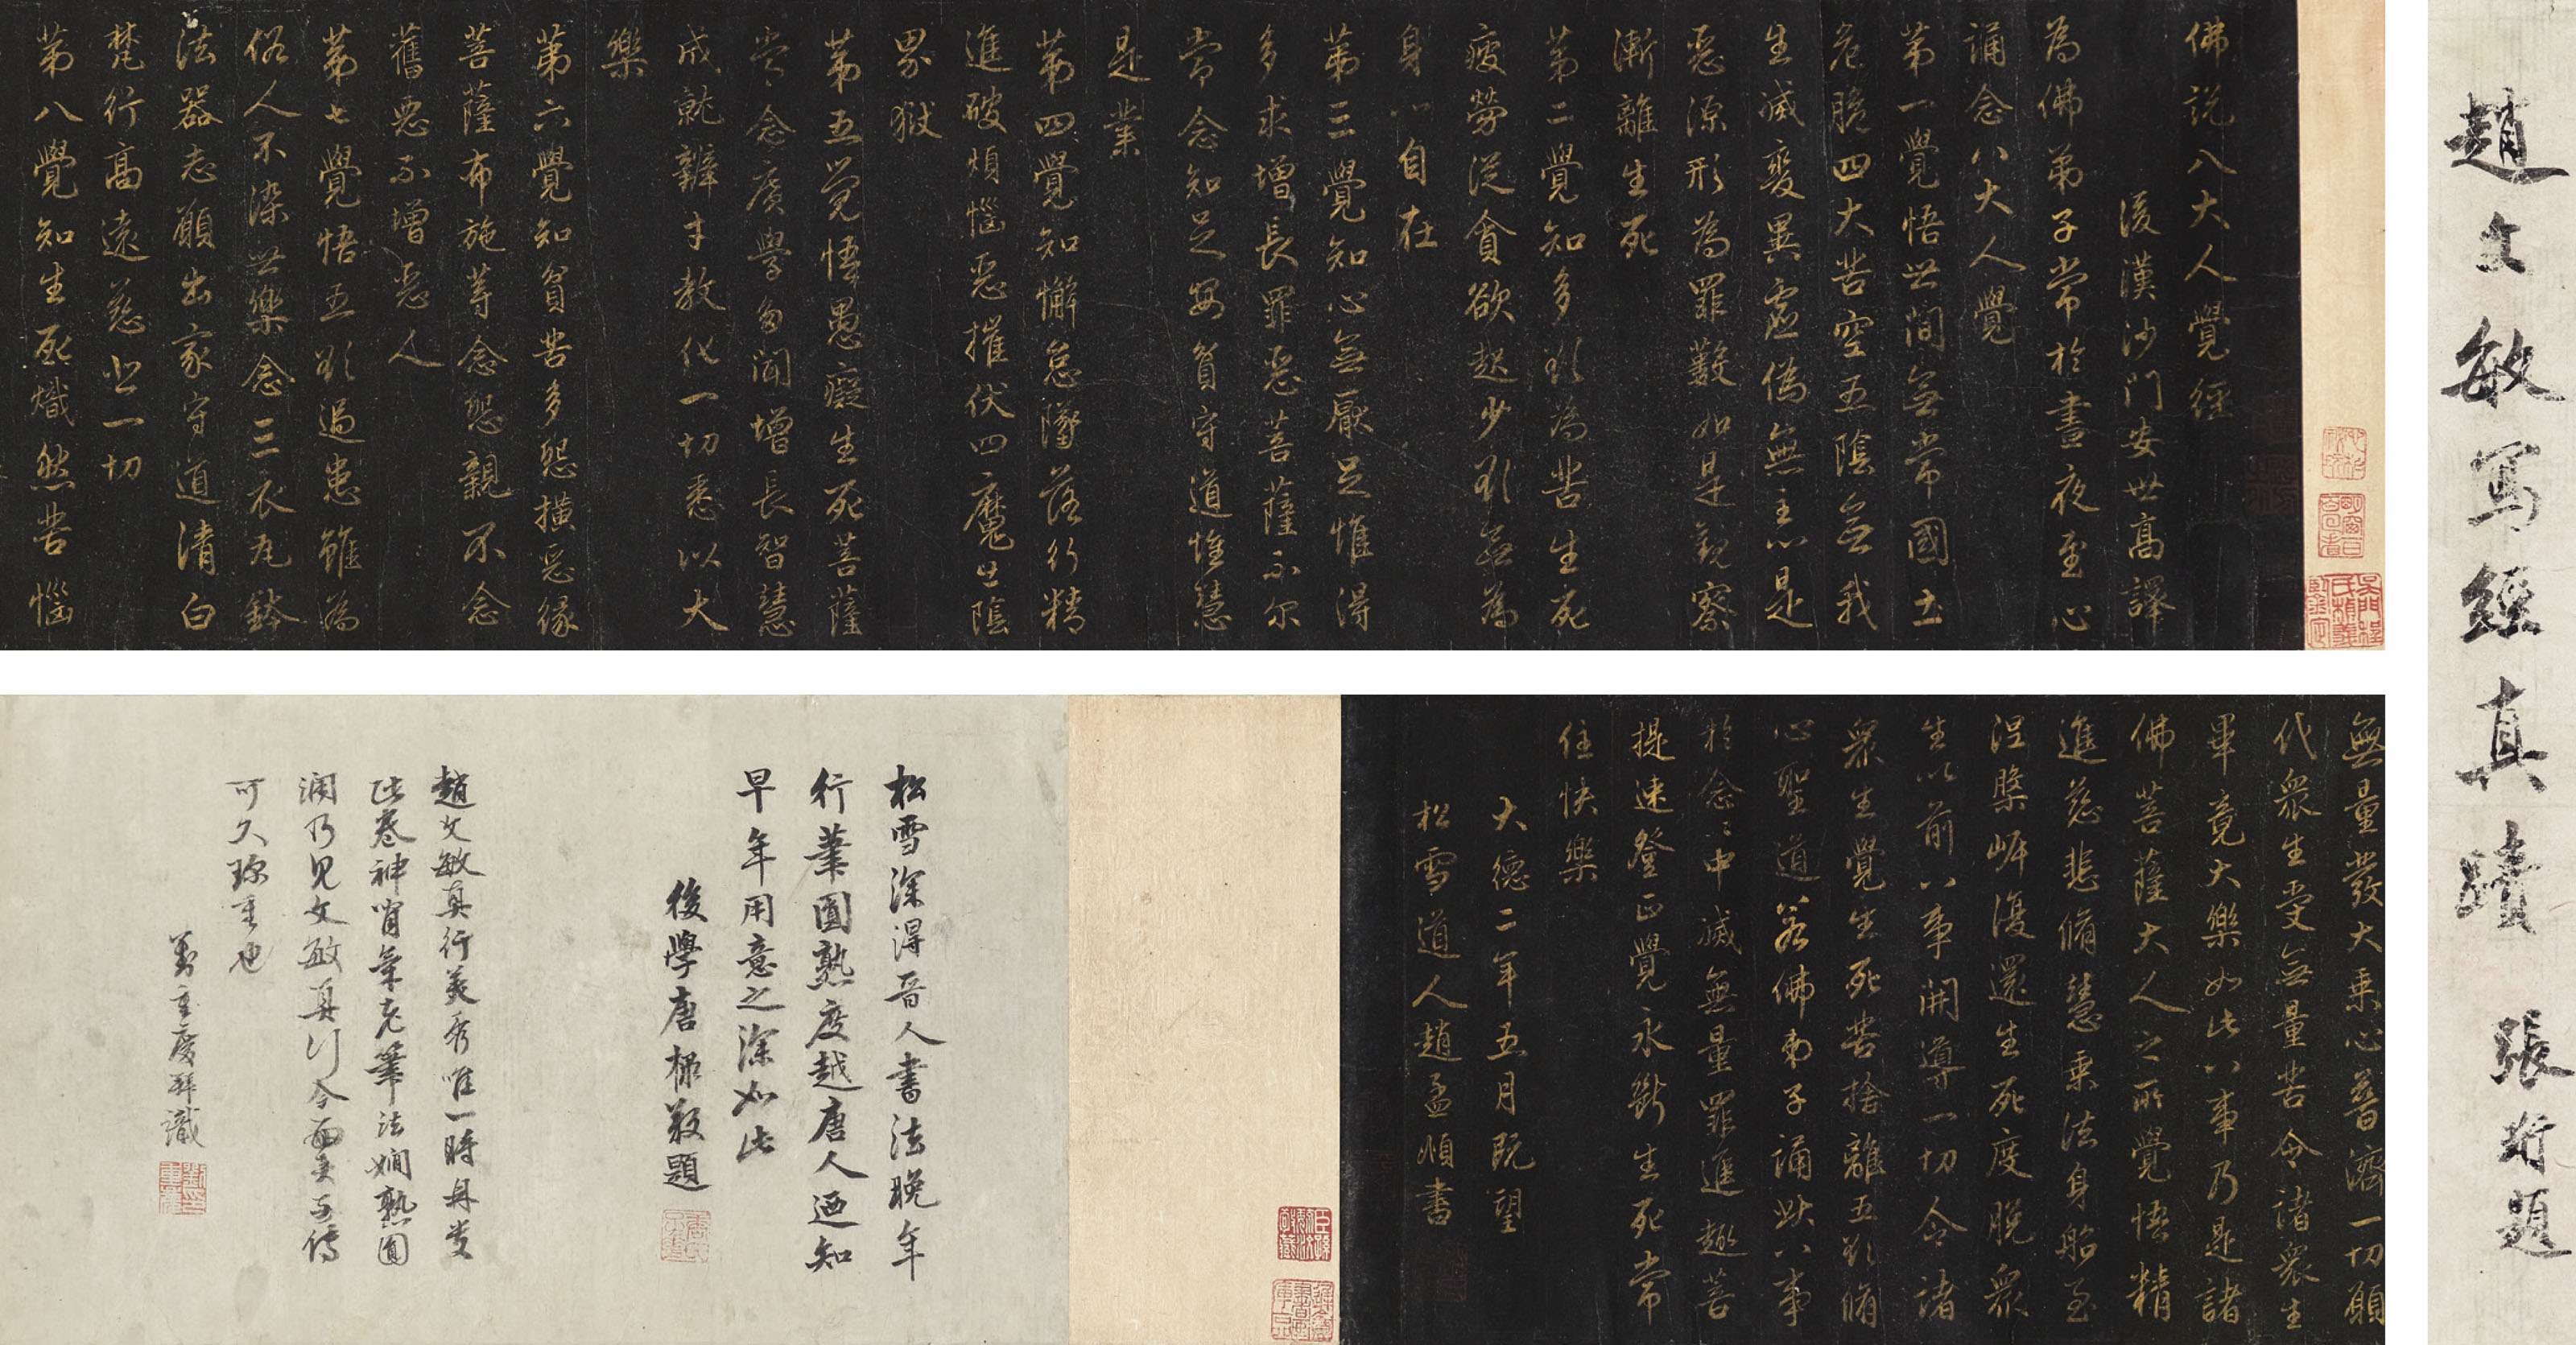 趙文敏寫經真蹟 張珩題
佛說八大人覺經
後漢沙門安世高譯
為佛弟子常於晝夜至心
誦念八大人覺
第一覺悟世間無常國土
危脆四大苦空五陰無我
生滅變異虛偽無主心是
惡源形為罪藪如是觀察
漸離生死
第二覺知多欲為苦生死
疲勞從貪欲起少欲無為
身心自在
第三覺知心無厭足惟得
多求增長罪惡菩薩不尔
常念知足安貧守道惟慧
是業
第四覺知懈怠墜落行精
進破煩惱惡摧伏四魔出陰
界獄
第五覺悟愚癡生死菩薩
常念廣學多聞增長智慧
成就辯才教化一切悉以大
樂
第六覺知貧苦多怨橫惡緣
菩薩布施等念怨親不念
舊惡不增惡人
第七覺悟五欲過患雖為
俗人不染世樂念三衣瓦鉢
法器志願出家守道清白
梵行高遠慈悲一切
第八覺知生死熾然苦惱
無量發大乘心普濟一切願
代眾生受無量苦令諸眾生
畢竟大樂如此八事乃是諸
佛菩薩大人之所覺悟精
進慈悲脩慧乘法身船至
涅槃岸復還生死度脫眾
生以前八事開導一切令諸
眾生覺生死苦捨離五欲脩
心聖道若佛弟子誦此八事
於念〻中滅無量罪進趣菩
提速登正覺永斷生死常
住快樂
大德二年五月既望
松雪道人趙孟頫書
松雪深得晉人書法晚年
行筆圓熟度越唐人迺知
早年用意之深如此
後學唐棣敬題
趙文敏真行美秀唯一時
此卷神嘗氣老筆法嫻熟圓
潤乃見文敏真行今
可久珍重也
重慶拜識